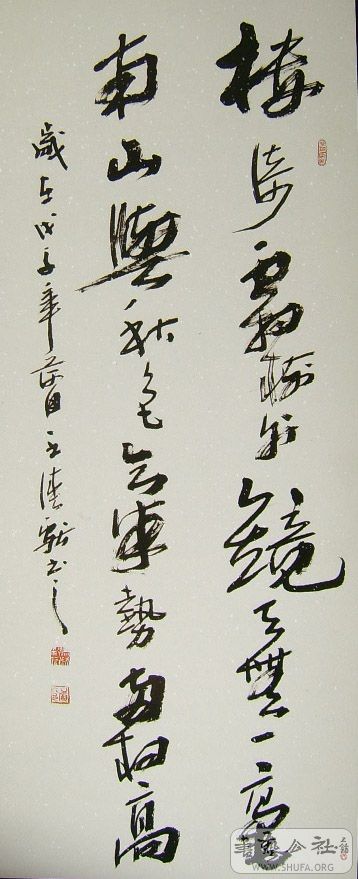 樓倚霜樹外鏡天無一毫
南山與秋色氣勢兩相高
歲在戊子年
書之
書法公社
WWW.SHUFA.ORG